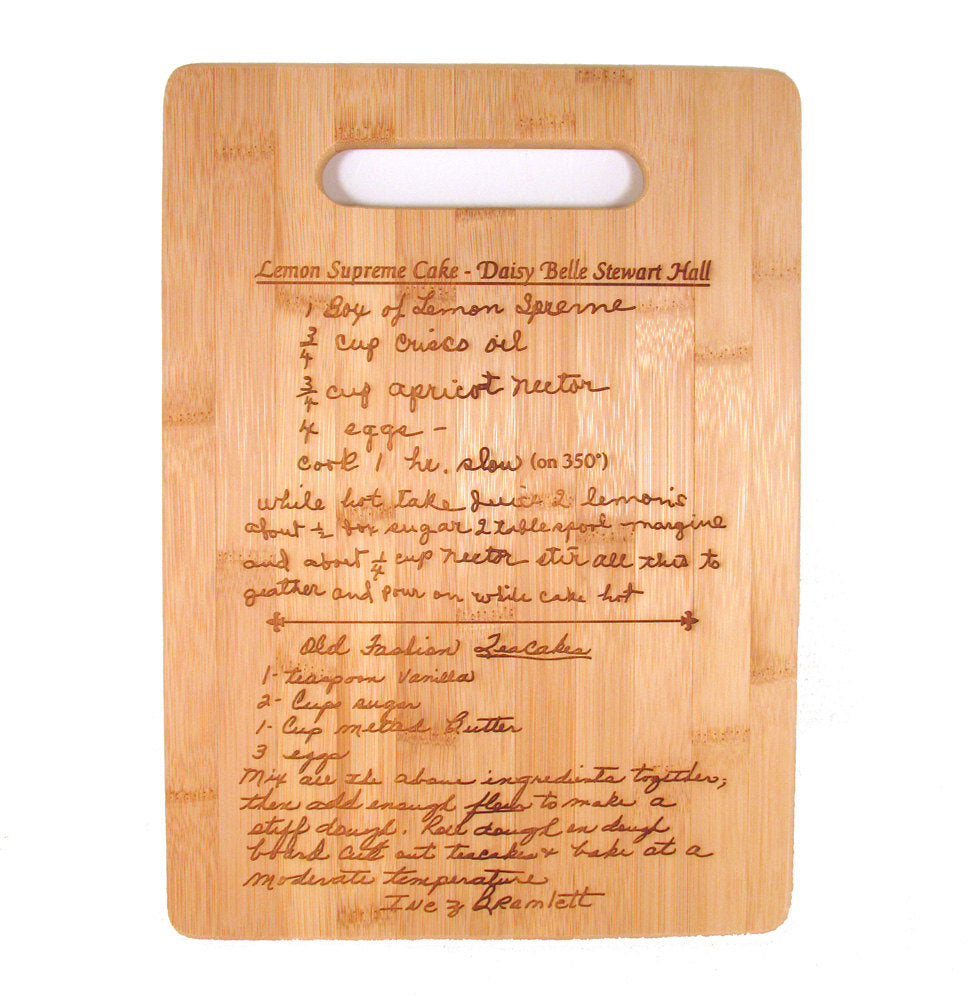 Lemon Supreme Cake - Daisy Belle Stewart Hall
1 Box of Lemon Spreme
3/4 cup Crisco oil
3/4 cup apricot Nector
4 eggs -
cook 1 hr. slow (on 350°)
while hot take Juice 2 lemons
about 1/2 box sugar 2 tablespool margine
and about 1/4 cup Nector stir all this to
geather and pour on while cake hot
Old Fashion Teacakes
1- teaspoon Vanilla
2- Cups sugar
1- Cup melted Butter
3 eggs
Mix all the above ingredients together;
then add enough flour to make a
stiff dough. Roll dough on dough
board Cut out teacakes & bake at a
moderate temperature
Inez Bramlett